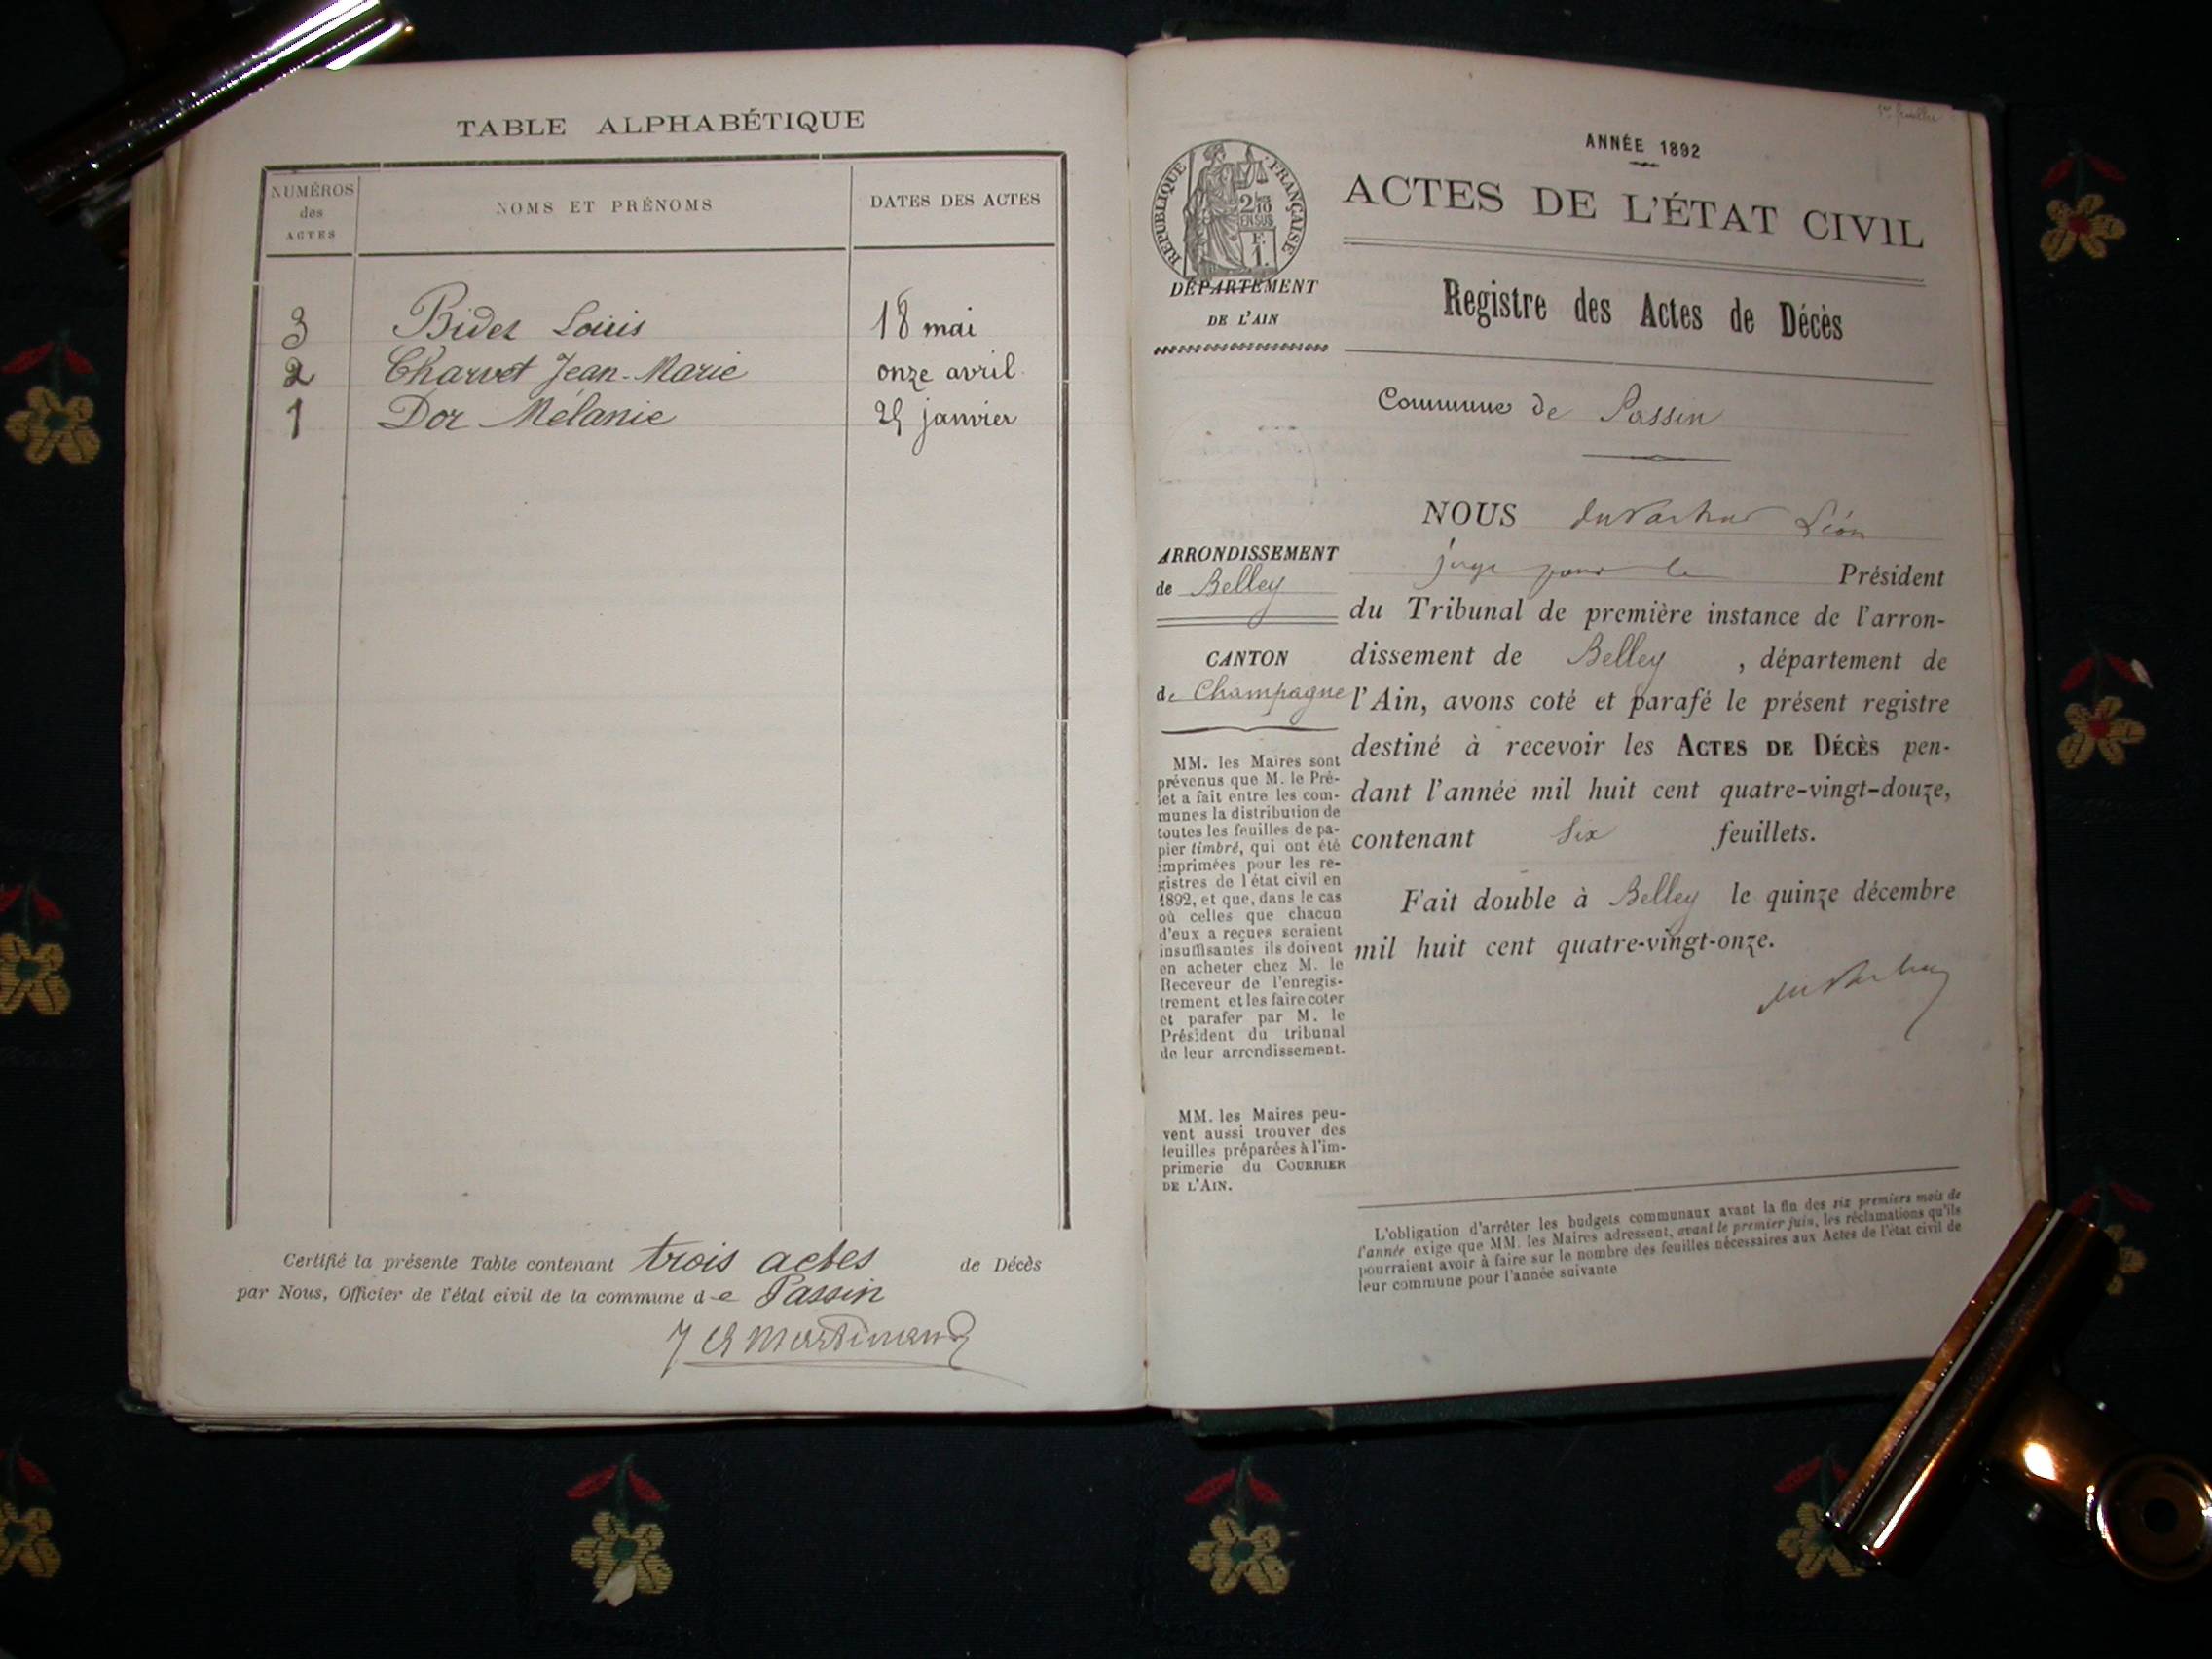 TABLE ALPHABÉTIQUE
NUMÉROS
des
ACTES
NOMS ET PRÉNOMS
DATES DES ACTES
3 Bidet Louis 18 mai
2 Charvet Jean-Marie onze avril
1 Dor Mélanie 25 janvier
Certifié la présente Table contenant trois actes de Décès
par Nous, Officier de l'état civil de la commune de Passin
Martinand
1er feuillet
ANNÉE 1892
ACTES DE L'ÉTAT CIVIL
Registre des Actes de Décès
Commune de Passin
RÉPUBLIQUE FRANÇAISE
2/10
EN SUS
F.
1.
DÉPARTEMENT
DE L'AIN
ARRONDISSEMENT
de Belley
CANTON
de Champagne
MM. les Maires sont
prévenus que M. le Pré-
fet a fait entre les com-
munes la distribution de
toutes les feuilles de pa-
pier timbré, qui ont été
imprimées pour les re-
gistres de l'état civil en
1892, et que, dans le cas
où celles que chacun
d'eux a reçues seraient
insuffisantes ils doivent
en acheter chez M. le
Receveur de l'enregis-
trement et les faire coter
et parafer par M. le
Président du tribunal
de leur arrondissement.
MM. les Maires peu-
vent aussi trouver des
feuilles préparées à l'im-
primerie du COURRIER
DE L'AIN.
NOUS Léon
juge pour le Président
du Tribunal de première instance de l'arron-
dissement de Belley , département de
l'Ain, avons coté et parafé le présent registre
destiné à recevoir les ACTES DE DÉCÈS pen-
dant l'année mil huit cent quatre-vingt-douze,
contenant Six feuillets.
Fait double à Belley le quinze décembre
mil huit cent quatre-vingt-onze.
L'obligation d'arrêter les budgets communaux avant la fin des six premiers mois de
l'année exige que MM. les Maires adressent, avant le premier juin, les réclamations qu'ils
pourraient avoir à faire sur le nombre des feuilles nécessaires aux Actes de l'état civil de
leur commune pour l'année suivante